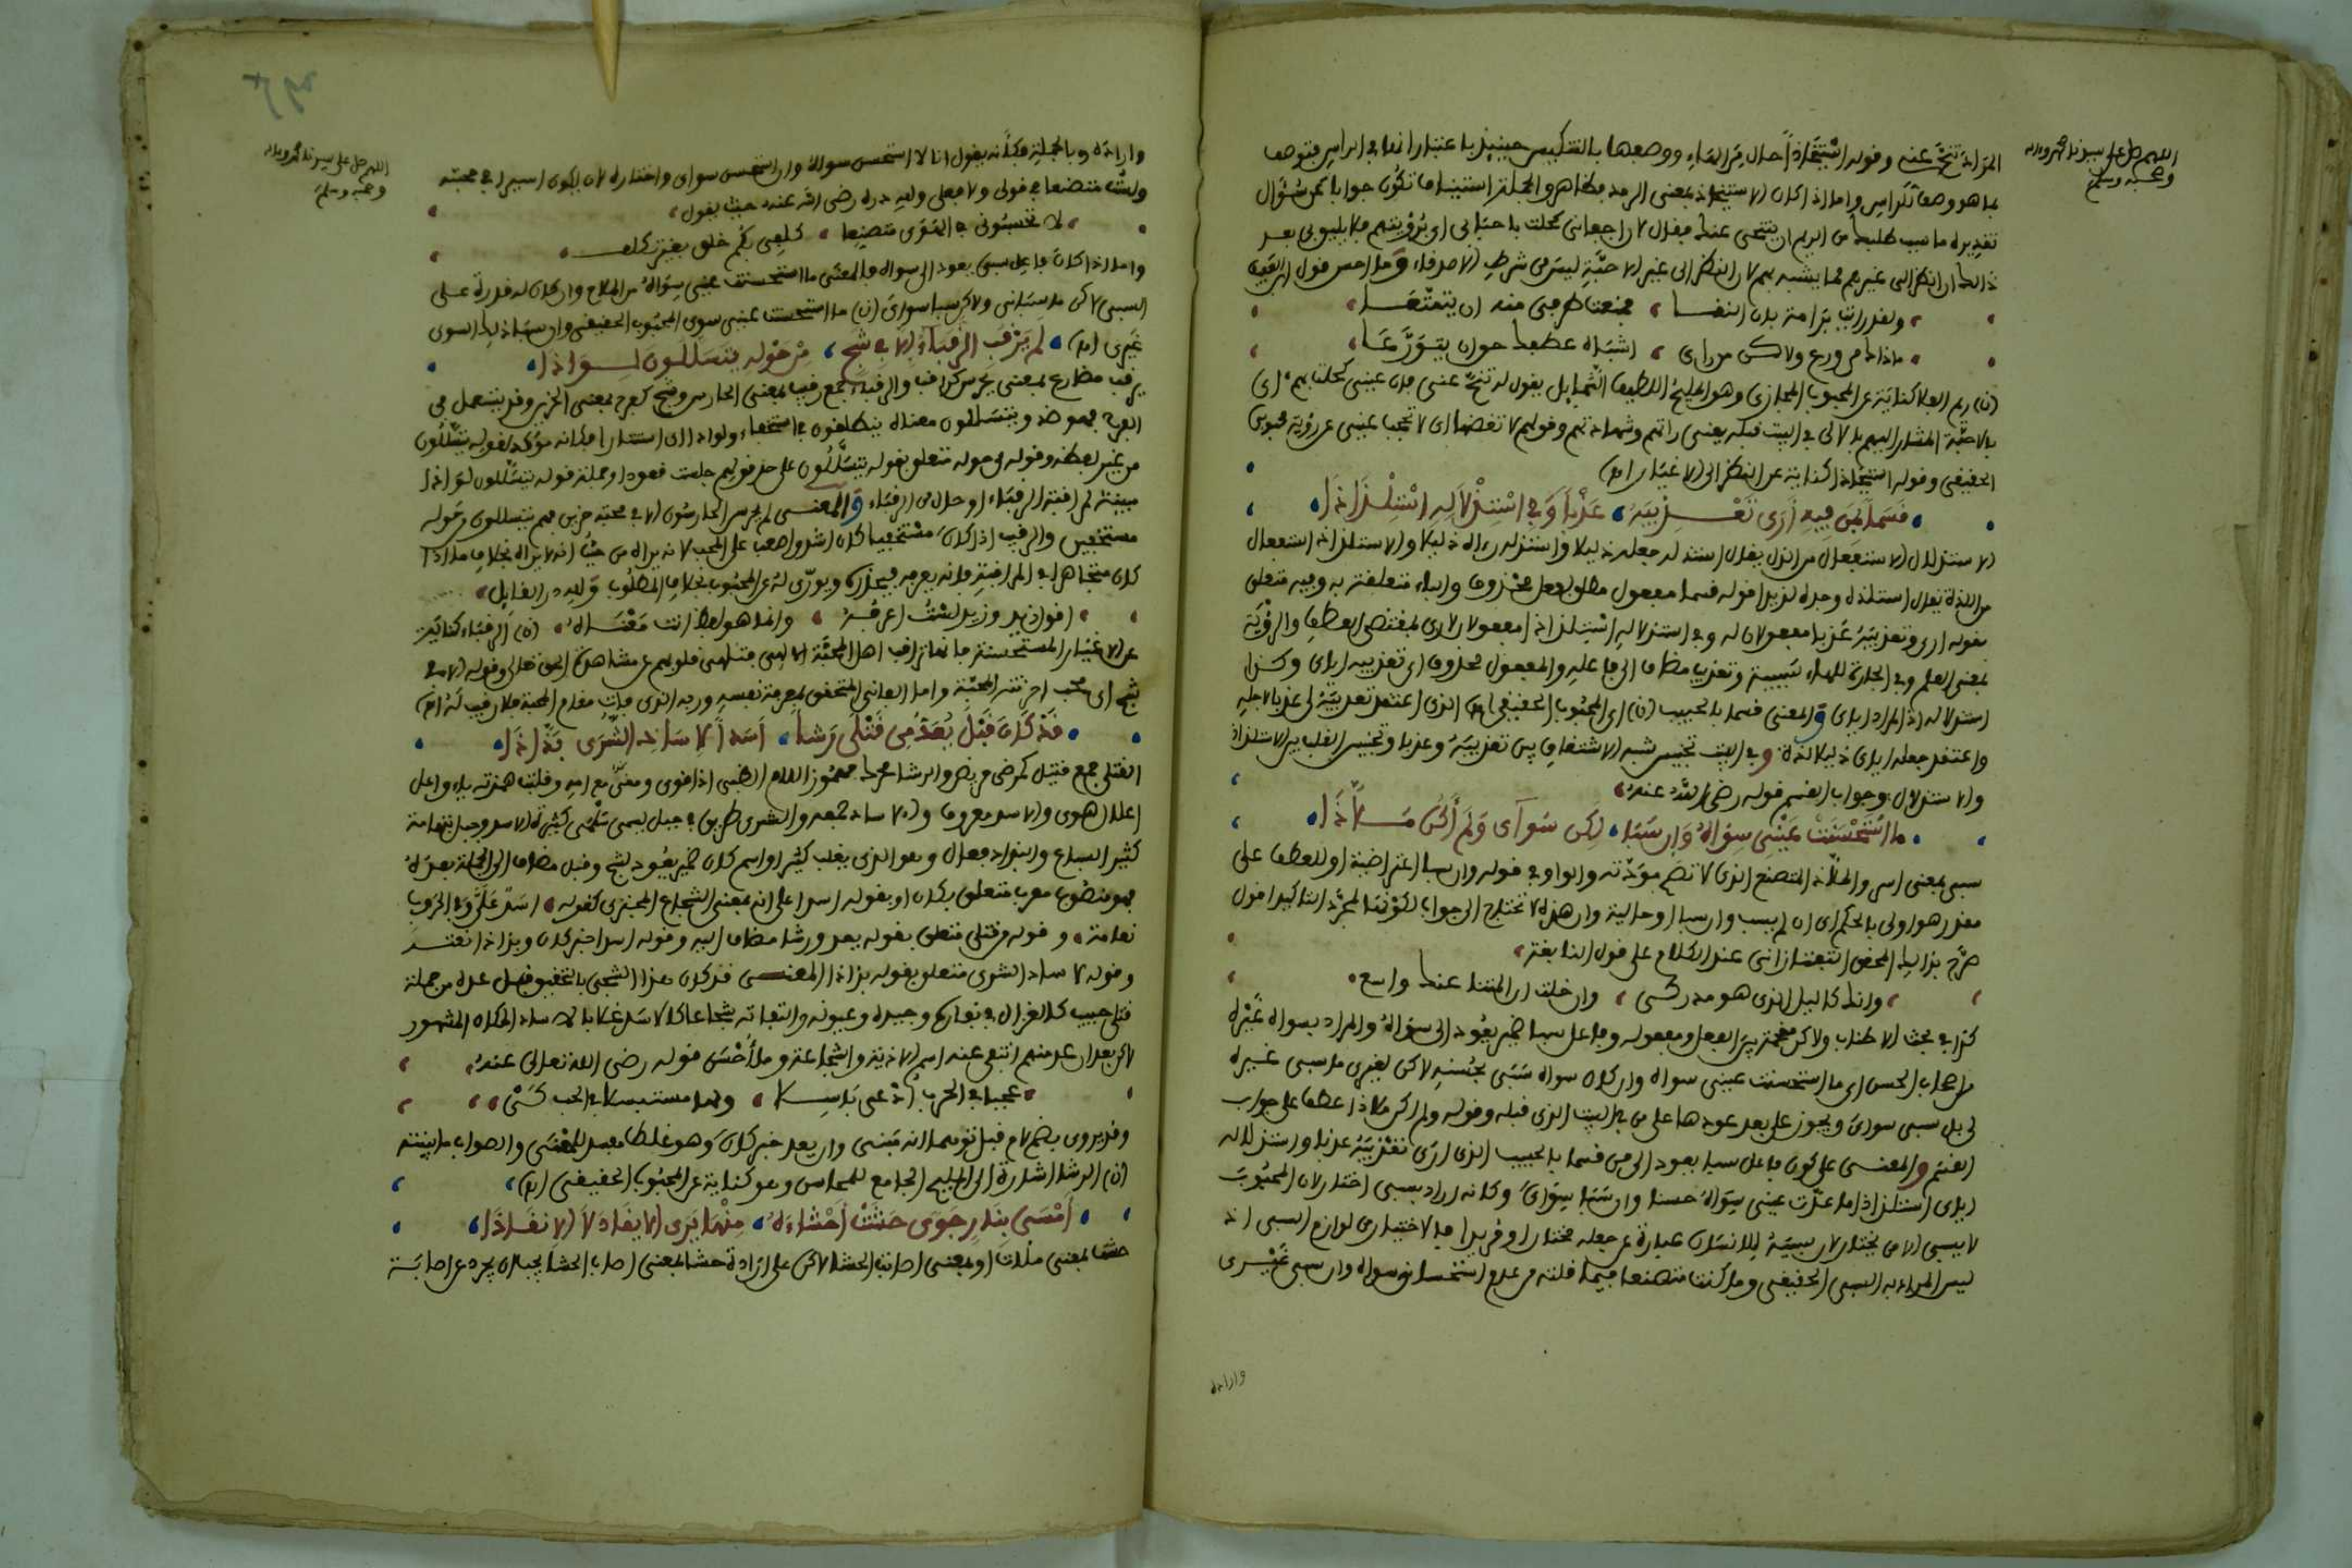 اللهم صل على سيدنا محمد وءاله
وصحبه وسلم
المراد تنح عنه وقوله استيخاذا حال من الهاء ووصفها بالتنكيس حينئذ باعتبار
تقديره ما سبب طلبك من الريم ان يتنحى عنك فقال لان اجفاني كحلت باحبابي اي برؤيتهم فلا يليق بي بعد
ذالك ان انظر الى غيرهم مما يشبه بهم لان النظر الى غير الاحبة ليس من شرط الاصدقاء وما احسن قول
ولقد رايت برامة بان النقا فمنعت طرفي منه ان يتمتعا
ماذاك من ورع ولاكن من راى اشباه عطفك حق ان يتورعا
(ن) ريم الفلا كناية عن المحبوب المجازي وهو المليح اللطيف الشمايل يقول له تنح عني فان عيني كحلت بهم اي
بالاحبة المشار اليهم
الحقيقي وقوله استيخاذا كناية عن النظر الى الاغيار اه
قسما بمن فيه ارى تعذيبه عذبا وفي استذلاله استلذاذا
الاستذلال الاستفعال من الذل يقال استذله جعله ذليلا واستذله رءاه ذليلا والاستلذاذ استفعال
من اللذة يقال استلذه وجده لذيذا قوله قسما مفعول مطلق لفعل محذوف والباء متعلقة به وفيه متعلق
بقوله ارى وتعذيبه عذبا مفعولان له وفي استذلاله استلذاذا مفعولان لارى بمقتضى العطف والرؤية
بمعنى العلم وفي الجارة للهاء سببية وتعذيب مضاف الى فاعله والمفعول محذوف اي تعذيبه اياي وكذا
استذلاله اذ المراد اياي والمعنى قسما بالحبيب (ن) اي المحبوب الحقيقي اه الذي اعتقد تعذيبه لي عذبا لاجله
واعتقد جعله اياي ذليلا لذة وفي البيت تجنيس شبه الاشتقاق بين تعذيبه وعذبا وتجنيس القلب بين الاستلذاذ
والاستذلال وجواب القسم قوله رضي الله عنه
ما استحسنت عيني سواه وان سبا لكن سوآي ولم اكن ملاذا
سبى بمعنى اسر والملاذ المتصنع الذي لا تصح مودته والواو في قوله وان سبا اعتراضية او للعطف على
مقدر هو اولى بالحكم اي ان لم يسب وان سبا او حالية وان هذه لا تحتاج الى جواب لكونها لمجرد التاكيد اقول
صرح بذالك المحقق التفتازاني عند الكلام على قول النابغة
وانك كالليل الذي هو مدركي وان خلت ان المنتئا عنك واسع
كذا في بحث الاطناب ولاكن مقحمة بين الفعل ومفعوله وفاعل سبا ضمير يعود الى سواه والمراد بسواه غيره
من اصحاب الحسن اي ما استحسنت عيني سواه وان كان سواه سبى بحسنه لاكن لغيري ما سبى غيره
لي بل سبى سوآي ويجوز على بعد عودها على من في البيت الذي قبله وقوله ولم اكن ملاذا عطف على جواب
القسم والمعنى على كون فاعل سبا يعود الى من قسما بالحبيب الذي ارى تعذيبه عذبا واستذلاله
اياي استلذاذا
لا يسبي الا من يختار لان سبيه للانسان عبارة عن جعله مختارا
ليس المراد به السبي الحقيقي وما كنت متصنعا فيما قلته من عدم استحسان سواه وان سبى غيري
وارادة
اللهم صل على سيدنا محمد وءاله
وصحبه وسلم
وارادة وبالجملة فكأنه يقول انا لا استحسن سواه وان استحسن سواي واختاره لان يكون اسيرا في محبته
ولست متصنعا في قولي ولا فعلي ولله دره رضي الله عنه حيث يقول
لا تحسبوني في الهوى متصنعا كلفي بكم خلق بغير تكلف
واما اذا كان فاعل سبى يعود الى سواه فالمعنى ما استحسنت عيني سواه من الملاح وان كان له قدرة على
السبي لاكن ما سباني ولاكن سبا سواي (ن) ما استحسنت عيني سوى المحبوب الحقيقي وان سبا ذالك السوى
غيري اه لم يرقب الرقباء الا في شج من حوله يتسللون لواذا
يرقب مضارع بمعنى يحرس كراقب والرقباء جمع رقيب بمعنى الحارس وشج كفرح بمعنى الحزين وقد يستعمل في
من غير لفظه وقوله من حوله متعلق بقوله يتسللون على حد قولهم جلست قعودا وجملة قوله يتسللون لواذا
مبينة لمراقبة الرقباء او حال من الرقباء والمعنى لم يحرس الحارسون الا في محبة حزين فهم يتسللون من حوله
مستخفين والرقيب اذا كان مستخفيا كان اشد واصعب على المحب لانه يراه من حيث انه لا يراه بخلاف ما اذا
كان متجاهرا في المراقبة فانه يعرفه فيحذره ويورى له عن المحبوب بخلاف المطلوب ولله در القايل
اقول زيد وزيد لست اعرفه وانما هو لفظ انت معناه (ن) الرقباء كناية
عن الاغيار المستحسنة فانها تراقب اهل المحبة الالهية فتلهي قلوبهم عن مشاهدة الحق تعالى وقوله الا في
شج اي محب احزنته المحبة واما الفاني المتحقق بمعرفة نفسه وربه الذي فات مقام المحبة فلا رقيب له اه
قد كان قبل يعد من قتلى رشا اسدا لآساد الشرى بذاذا
القتلى جمع قتيل كمرضى مريض والرشا محركا مهموز اللام الظبي اذا قوي ومشى مع امه وقلبت همزته ياء واعل
اعلال هوى والاسد معروف والاساد جمعه والشرى طريق في جبل يسمى سلمى كثيرة الاسد وجبل بتهامة
كثير السباع والبذاذ فعال وهو الذي يغلب كثيرا واسم كان ضمير يعود لشج وقبل مضاف الى الجملة بعده
نعامة وقوله من قتلى متعلق بقوله يعد ورشا مضاف اليه وقوله اسدا خبر كان وبذاذا نعت
وقوله لاساد الشرى متعلق بقوله بذاذا المعنى قد كان هذا الشجي بالتخفيف قبل عده من جملة
قتلى حبيب كالغزال في نفاره وجيده وعيونه والتفاته شجاعا كالاسد غلابا لاساد المكان المشهور
لاكن بعد ان عد منهم انتفى عنه اسم الاذية والشجاعة وما احسن قوله رضي الله تعالى عنه
عجبا في الحرب ادعى باسلا ولها مستبسلا في الحب كي
وقد يروى بضم لام قبل توهما انه مبني وان يعد خبر كان وهو غلط مفسد للمعنى والصواب ما بينته
(ن) الرشا اشارة الى المليح الجامع للمحاسن وهو كناية عن المحبوب الحقيقي اه
امسى بنار جوى حشت احشاءه منها يرى الايقاد لا الانقاذا
حشت بمعنى ملأت او بمعنى اصابت الحشا لاكن على ارادة حشا بمعنى اصاب الحشا يجب ان يجرد عن اصابة